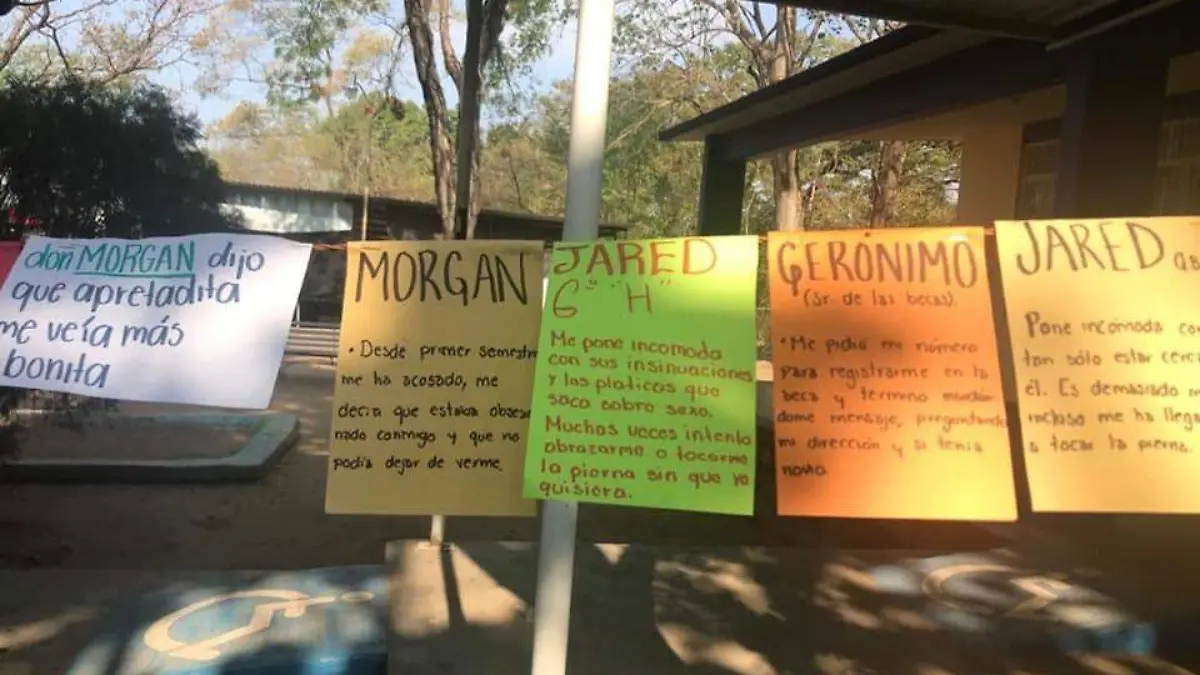 don MORGAN dijo
que apretadita
me veía más
bonita
MORGAN
• Desde primer semestre
me ha acosado, me
decía que estaba obsesio
nado conmigo y que no
podía dejar de verme.
JARED
6° "H"
Me pone incomoda
con sus insinuaciones
y las platicas que
saca sobre sexo.
Muchas veces intento
abrazarme o tocarme
la pierna sin que yo
quisiera.
GERÓNIMO
(Sr. de las becas).
• Me pidio mi número
para registrarme en la
beca y termino mandan
dome mensaje, preguntando
mi dirección y si tenia
novio
JARED
Pone incomoda con
tan sólo estar cerca
él. Es demasiado
incluso me ha llega
a tocar la pierna.